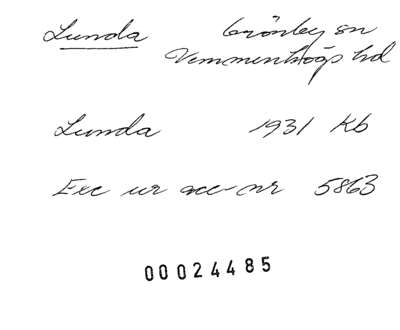 Lunda Grönby sn
Vemmenhögs hd
Lunda 1931 Kb
Exc ur acc-nr 5863
00024485